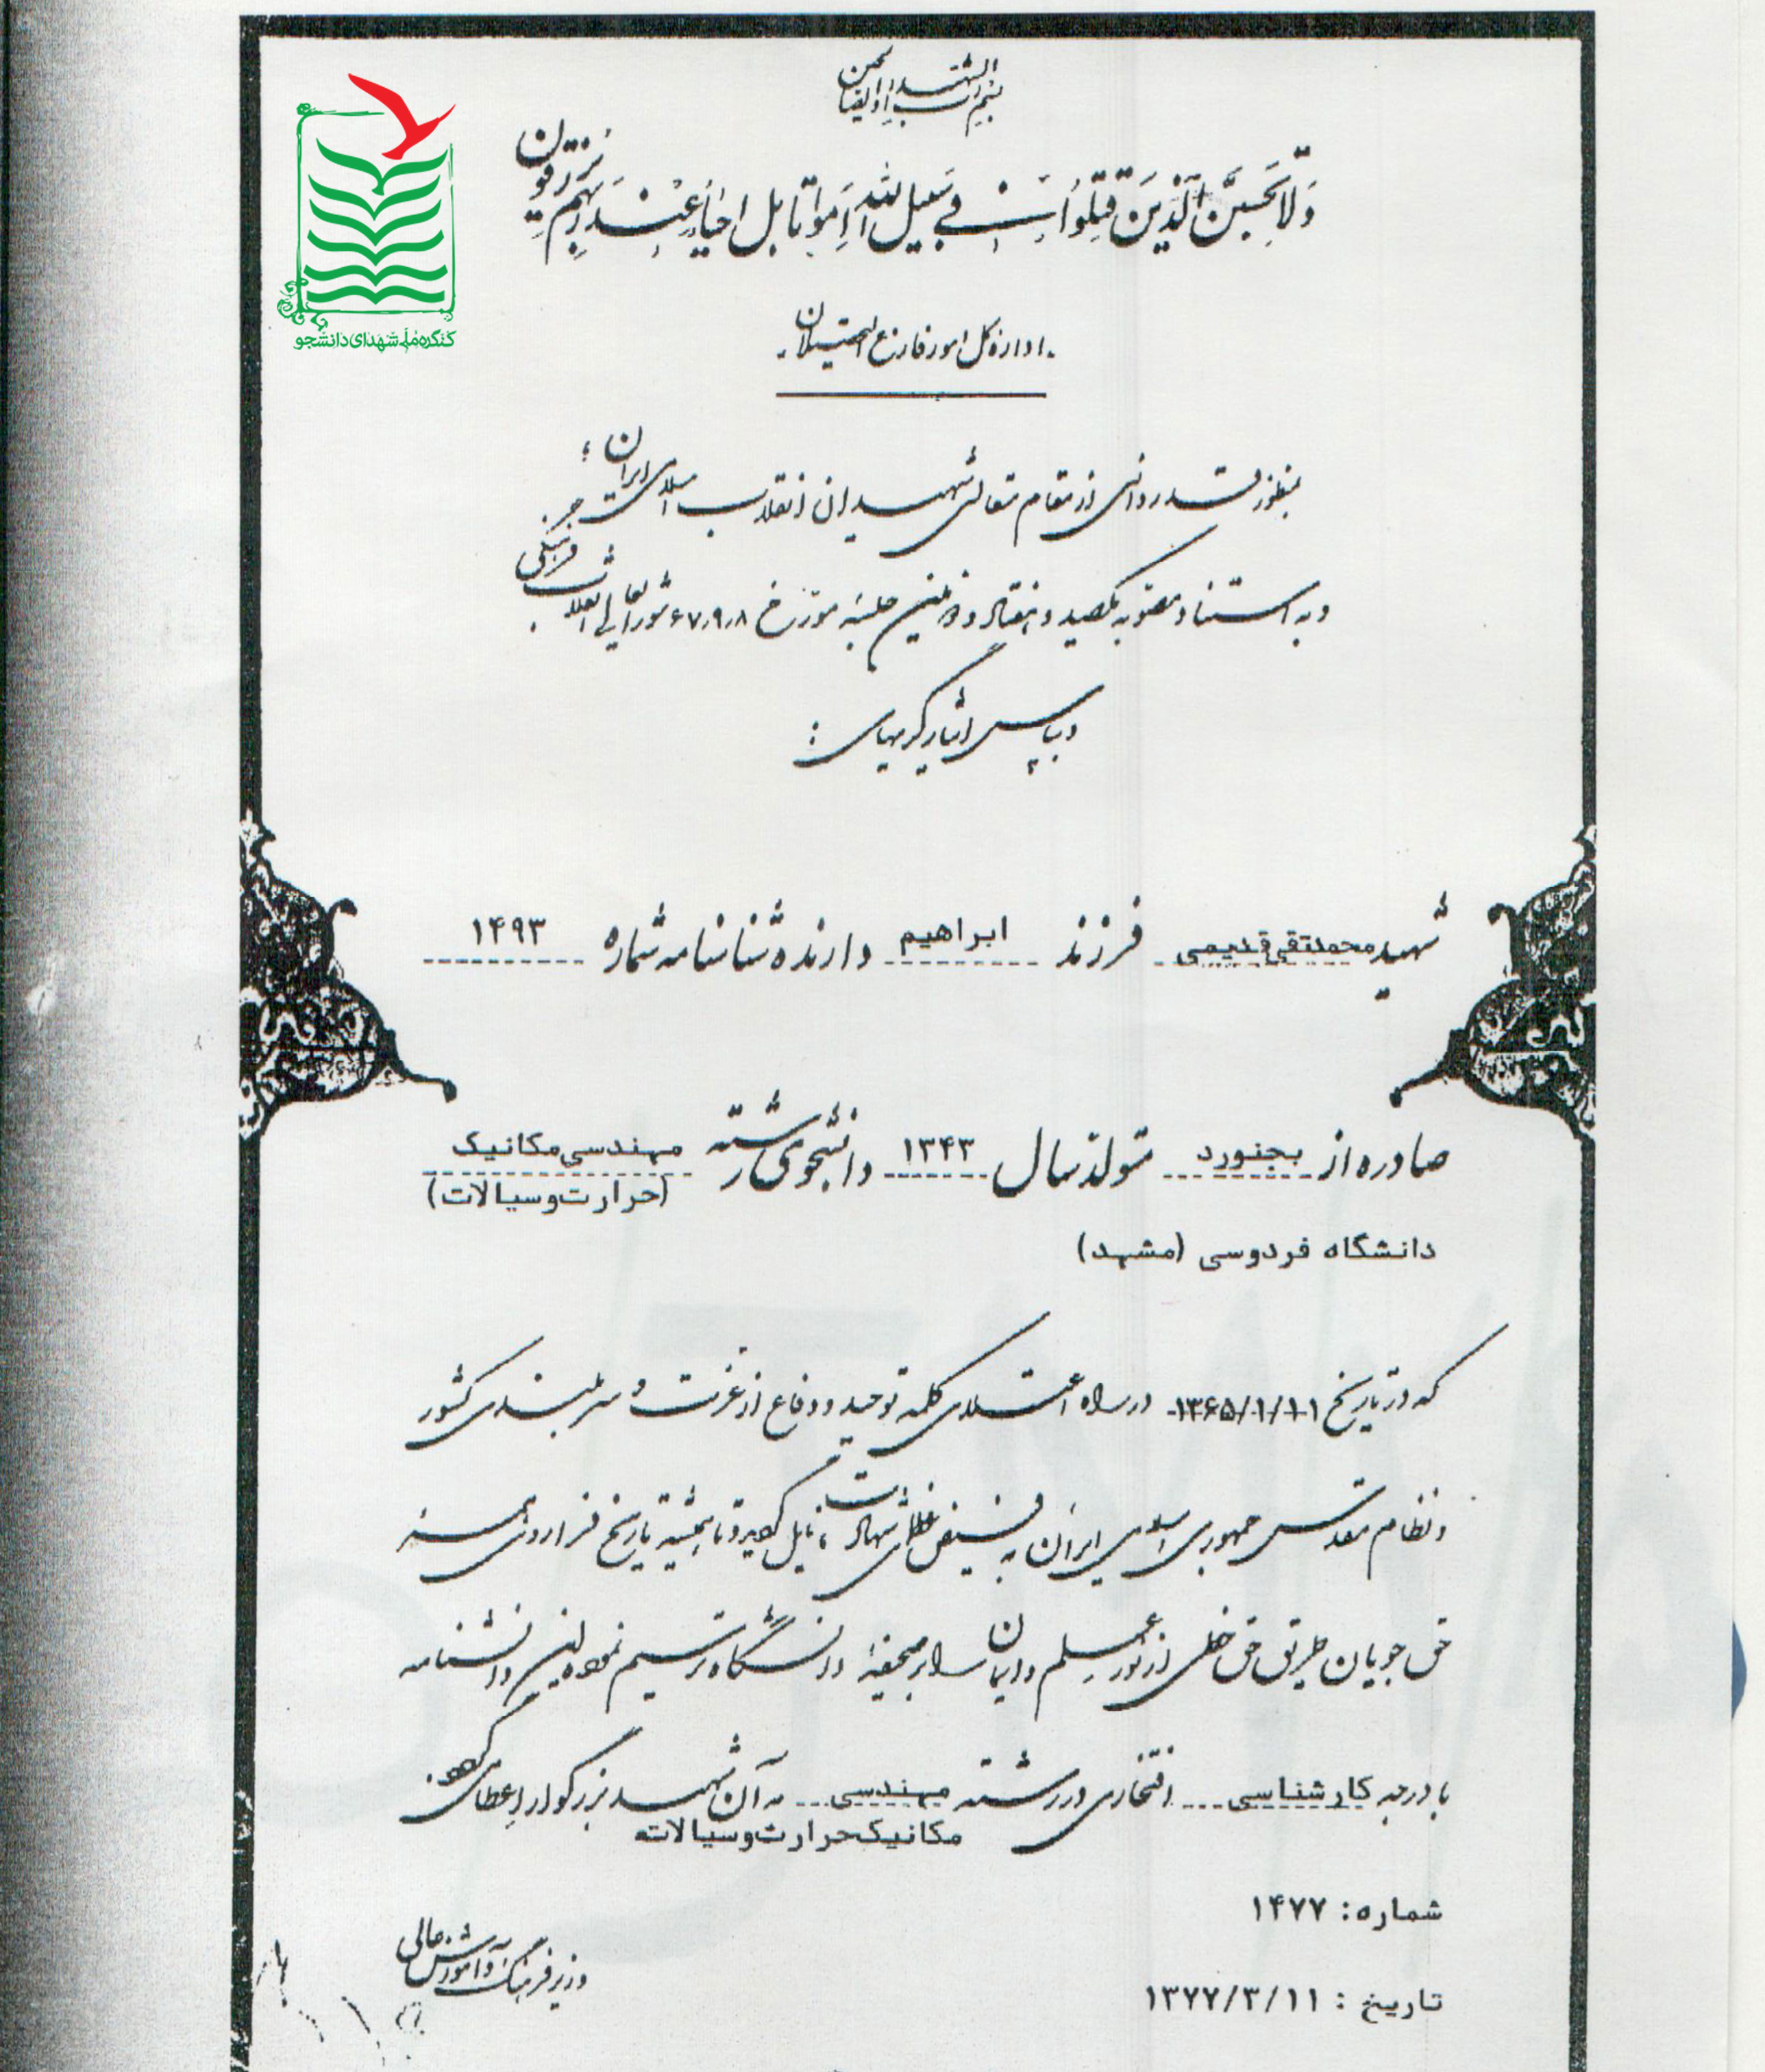 بسم رب الشهداء والصدیقین
وَلا تَحسَبَنَّ الَّذینَ قُتِلُوا فی سَبیلِ اللهِ اَمواتاً بَل اَحیاءٌ عِندَ رَبِّهِم یُرزَقونَ
کنگره ملی شهدای دانشجو
اداره کل امور فارغ التحصیلان
بمنظور قدردانی از مقام متعالی شهیدان انقلاب اسلامی ایران ؛
و به استناد مصوبه یکصد و هفتاد و دومین جلسه مورخ ۶۷٫۹٫۸ شورایعالی انقلاب فرهنگی
و بپاس ایثارگریهای :
شهید محمدتقی قدیمی فرزند ابراهیم دارنده شناسنامه شماره ۱۴۹۳
صادره از بجنورد متولد سال ۱۳۴۳ دانشجوی رشته مهندسی مکانیک
(حرارت و سیالات)
دانشگاه فردوسی (مشهد)
که در تاریخ ۱۳۶۵/۱/۱۱ در راه اعتلای کلمه توحید و دفاع از عزت و سربلندی کشور
و نظام مقدس جمهوری اسلامی ایران به فیض عظمای شهادت نایل گردید و تا همیشه تاریخ فراروی همه
حق جویان طریق حق خطی از نور علم و ایمان را بر صحیفه دانشگاه ترسیم نمود این دانشنامه
با درجه کارشناسی افتخاری در رشته مهندسی به آن شهید بزرگوار اعطا می گردد.
مکانیک حرارت و سیالات
شماره: ۱۴۷۷
وزیر فرهنگ و آموزش عالی
تاریخ : ۱۳۷۷/۳/۱۱